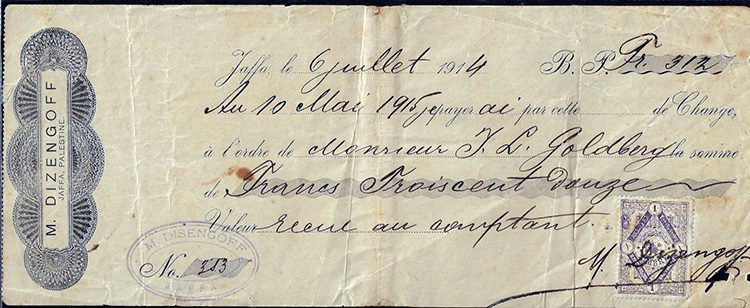 M. DIZENGOFF
JAFFA, PALESTINE.
Jaffa, le 6 juillet 1914 B. P. Fr. 312
Au 10 Mai 1915 je payerai par cette de Change,
à l'ordre de Monsieur J. L. Goldberg la somme
de Francs Troiscent douze
Valeur recue au comptant.
M. DISENGOFF
No. 313
JAFFA
M. Dizengoff
1
1 1